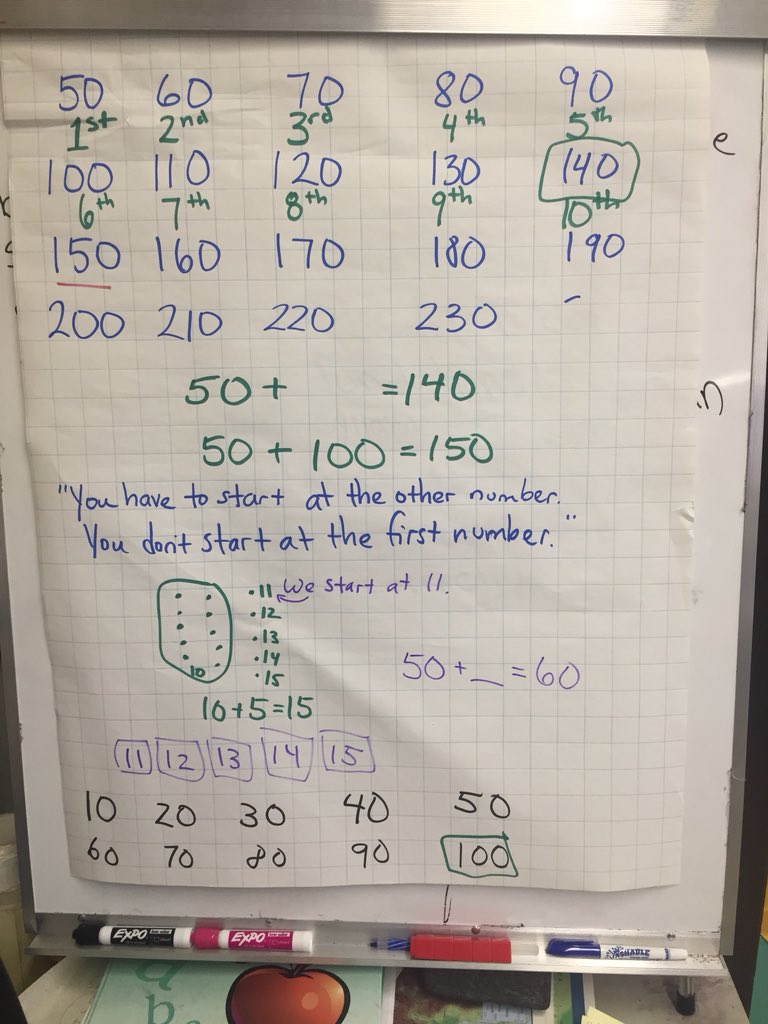 50 60 70 80 90
1st 2nd 3rd 4th 5th
100 110 120 130 140
6th 7th 8th 9th 10th
150 160 170 180 190
200 210 220 230 -
50 + =140
50 + 100 = 150
"You have to start at the other number.
You don't start at the first number."
·11 We start at 11.
·12
·13
·14
10 ·15
50 + _ = 60
10+5=15
11 12 13 14 15
10 20 30 40 50
60 70 80 90 100
e
n
EXPO EXPO WASHABLE